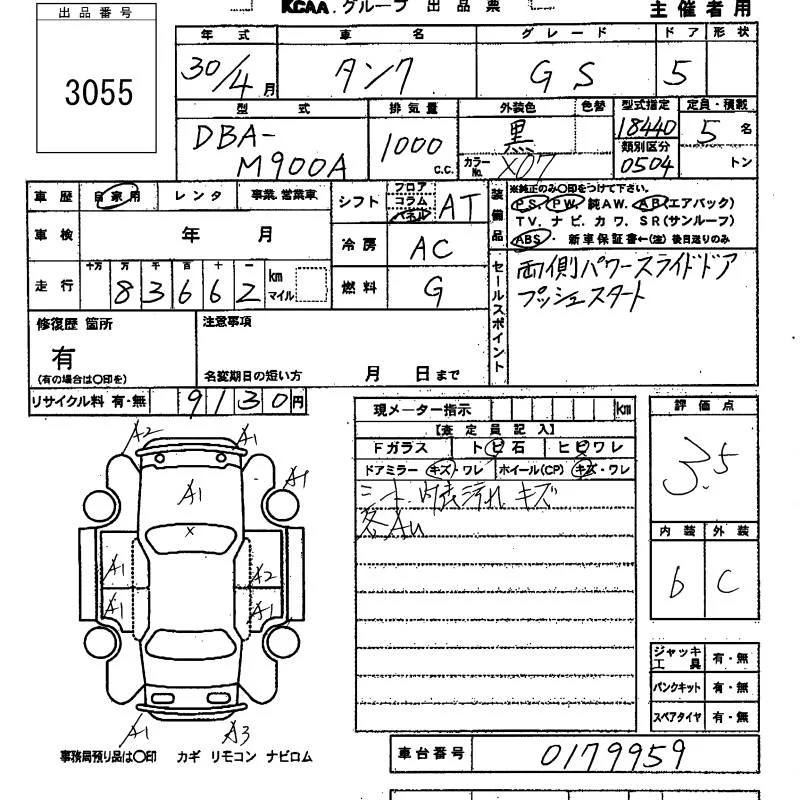 出品番号
3055
KCAA.グループ 出品票
主催者用
年式 車名 グレード ドア 形状
30/4月 タンク GS 5
型式 排気量 外装色 色替 型式指定 定員・積載
DBA-M900A 1000 C.C. 黒 18440 5名
カラーNo. X07 類別区分 0504 トン
車歴 自家用 レンタ 事業.営業車
シフト フロア コラム パネル AT
装備品 ※純正のみ〇印をつけて下さい。
PS. PW. 純AW. AB(エアバック)
TV. ナビ. カワ. SR(サンルーフ)
ABS・ 新車保証書←(注)後日送りのみ
車検 年 月
冷房 AC
走行 十万 万 千 百 十 一
83662 km マイル
燃料 G
セールスポイント
両側パワースライドドア
プッシュスタート
修復歴 箇所
有
(有の場合は〇印を)
注意事項
名変期日の短い方 月 日まで
リサイクル料 有・無 9130円
現メーター指示 km
【査定員記入】
Fガラス トビ石 ヒビワレ
ドアミラー キズ・ワレ ホイール(CP) キズ・ワレ
シート.内張汚れ キズ
各AU
評価点
3.5
内装 外装
b C
A2 A1
A1 A1
×
A1 A2
A1 A1
A1 A3
ジャッキ工具 有・無
パンクキット 有・無
スペアタイヤ 有・無
事務局預り品は〇印 カギ リモコン ナビロム
車台番号 0179959